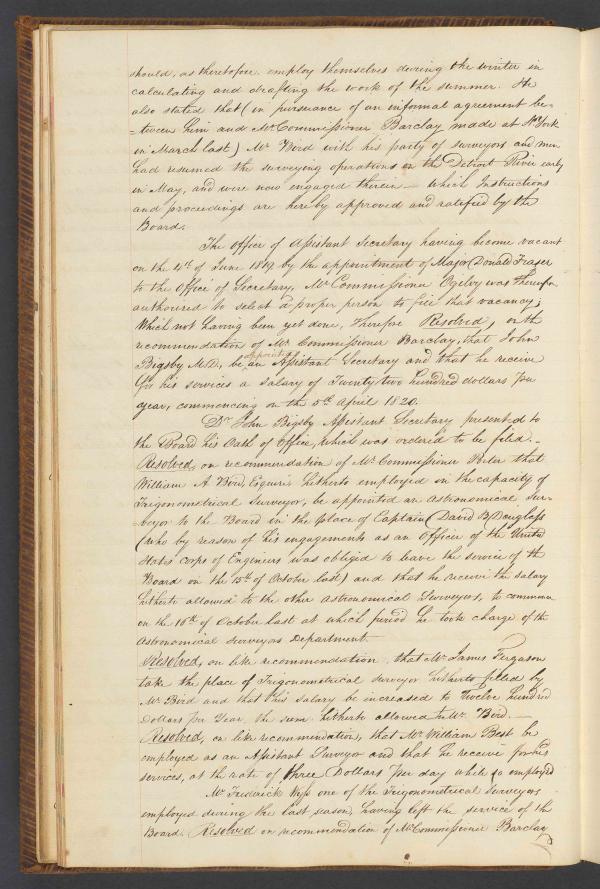 should, as theretofore employ themselves during the winter in
calculating and drafting the work of the summer. He
also stated that (in pursuance of an informal agreement be-
-tween him and Mr. Commissioner Barclay made at N. York
in March last) Mr Bird with his party of surveyors and men
had resumed the surveying operations on the Detroit River early
in May, and were now engaged therein — Which Instructions
and proceedings are hereby approved and ratified by the
Board.
The office of Assistant Secretary having become vacant
on the 4th of June 1819 by the appointment of Major Donald Fraser
to the Office of Secretary, Mr Commissioner Ogilvy was therefore
authorized to select a proper person to fill that vacancy;
Which not having been yet done, Therefore Resolved, on the
recommendation of Mr Commissioner Barclay, that John
Bigsby M.D., be appointed an Assistant Secretary and that he receive
for his services a salary of Twenty two hundred dollars per
year, commencing on the 5th April 1820.
Dr John Bigsby Assistant Secretary presented to
the Board his Oath of Office, which was ordered to be filed. -
Resolved, on recommendation of Mr Commissioner Porter that
William A Bird, Esquire hitherto employed in the capacity of
Trigonometrical Surveyor, be appointed an Astronomical Sur-
-veyor to the Board in the place of Captain David B Douglass
(who by reason of his engagements as an Officer of the United
States corps of Engineers was obliged to leave the service of the
Board on the 15th of October last) and that he receive the salary
hitherto allowed to the other Astronomical Surveyors, to commence
on the 16th of October last at which period he took charge of the
Astronomical Surveyors Department.
Resolved, on like recommendation, that Mr James Ferguson
take the place of Trigonometrical surveyor hitherto filled by
Mr Bird and that his salary be increased to Twelve hundred
Dollars per Year, the sum hitherto allowed to Mr Bird. —
Resolved, on like recommendation, that Mr William Best be
employed as an Assistant Surveyor and that he receive for his
services, at the rate of three Dollars per day while so employed
Mr Frederick one of the Trigonometrical Surveyors
employed during the last season, having left the service of the
Board. Resolved on recommendation of Mr Commissioner Barclay